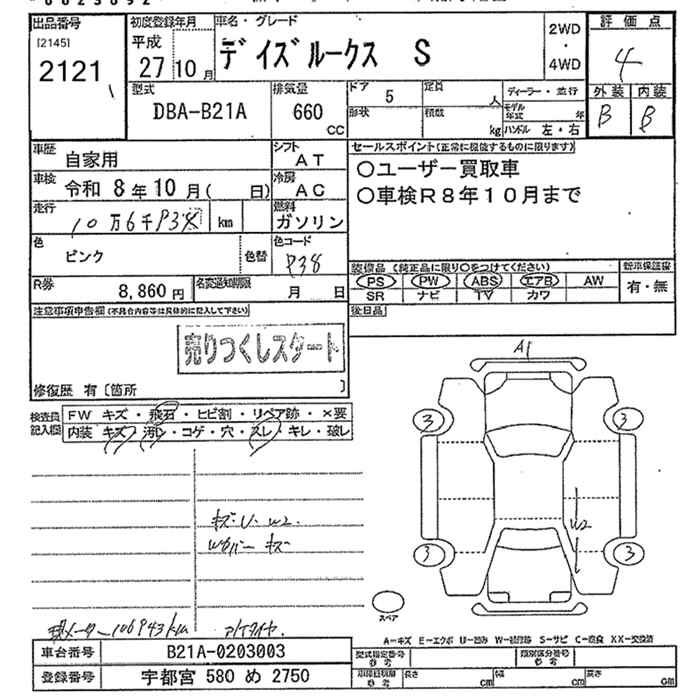 出品番号
[2145]
2121
初度登録年月
平成
27 10月
車名・グレード
デイズルークス S
2WD
・
4WD
評価点
4
外装 内装
B B
型式
DBA-B21A
排気量
660
CC
ドア 5
形状
定員 人
積数 kg
ディーラー・並行
モデル年式 年
ハンドル 左・右
車歴
自家用
シフト
AT
車検
令和 8年10月( 日)
冷房
AC
走行
km
燃料
ガソリン
色
ピンク
色替
色コード
P38
R券
8,860円
名変通知期限
月 日
セールスポイント(正常に機能するものに限ります)
○ユーザー買取車
○車検R8年10月まで
装備品 (純正品に限り○をつけてください)
PS PW ABS エアB AW
SR ナビ TV カワ
新車保証書
有・無
後日品
注意事項申告欄(不具合内容等は具体的に記入して下さい)
売りつくしスタート
修復歴 有[箇所 ]
検査員記入欄
FW キズ・飛石・ヒビ割・リペア跡・×要
内装 キズ・汚レ・コゲ・穴・スレ・キレ・破レ
A1
3 3
W2
3 3
スペア
キズ・U・W2
A-キズ E-エクボ U-凹み W-補修跡 S-サビ C-腐食 XX-交換済
車台番号 B21A-0203003
登録番号 宇都宮 580 め 2750
型式指定番号 参考
類別区分番号 参考
長さ cm
幅 cm
高さ cm